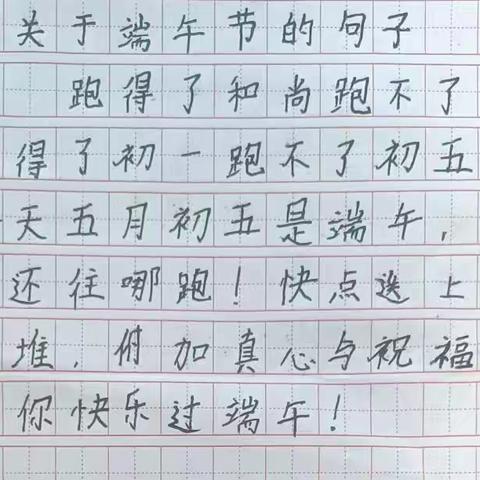 关于端午节的句子
跑得了和尚跑不了
得了初一跑不了初五
天五月初五是端午,
还往哪跑!快点送上
堆,附加真心与祝福
你快乐过端午!